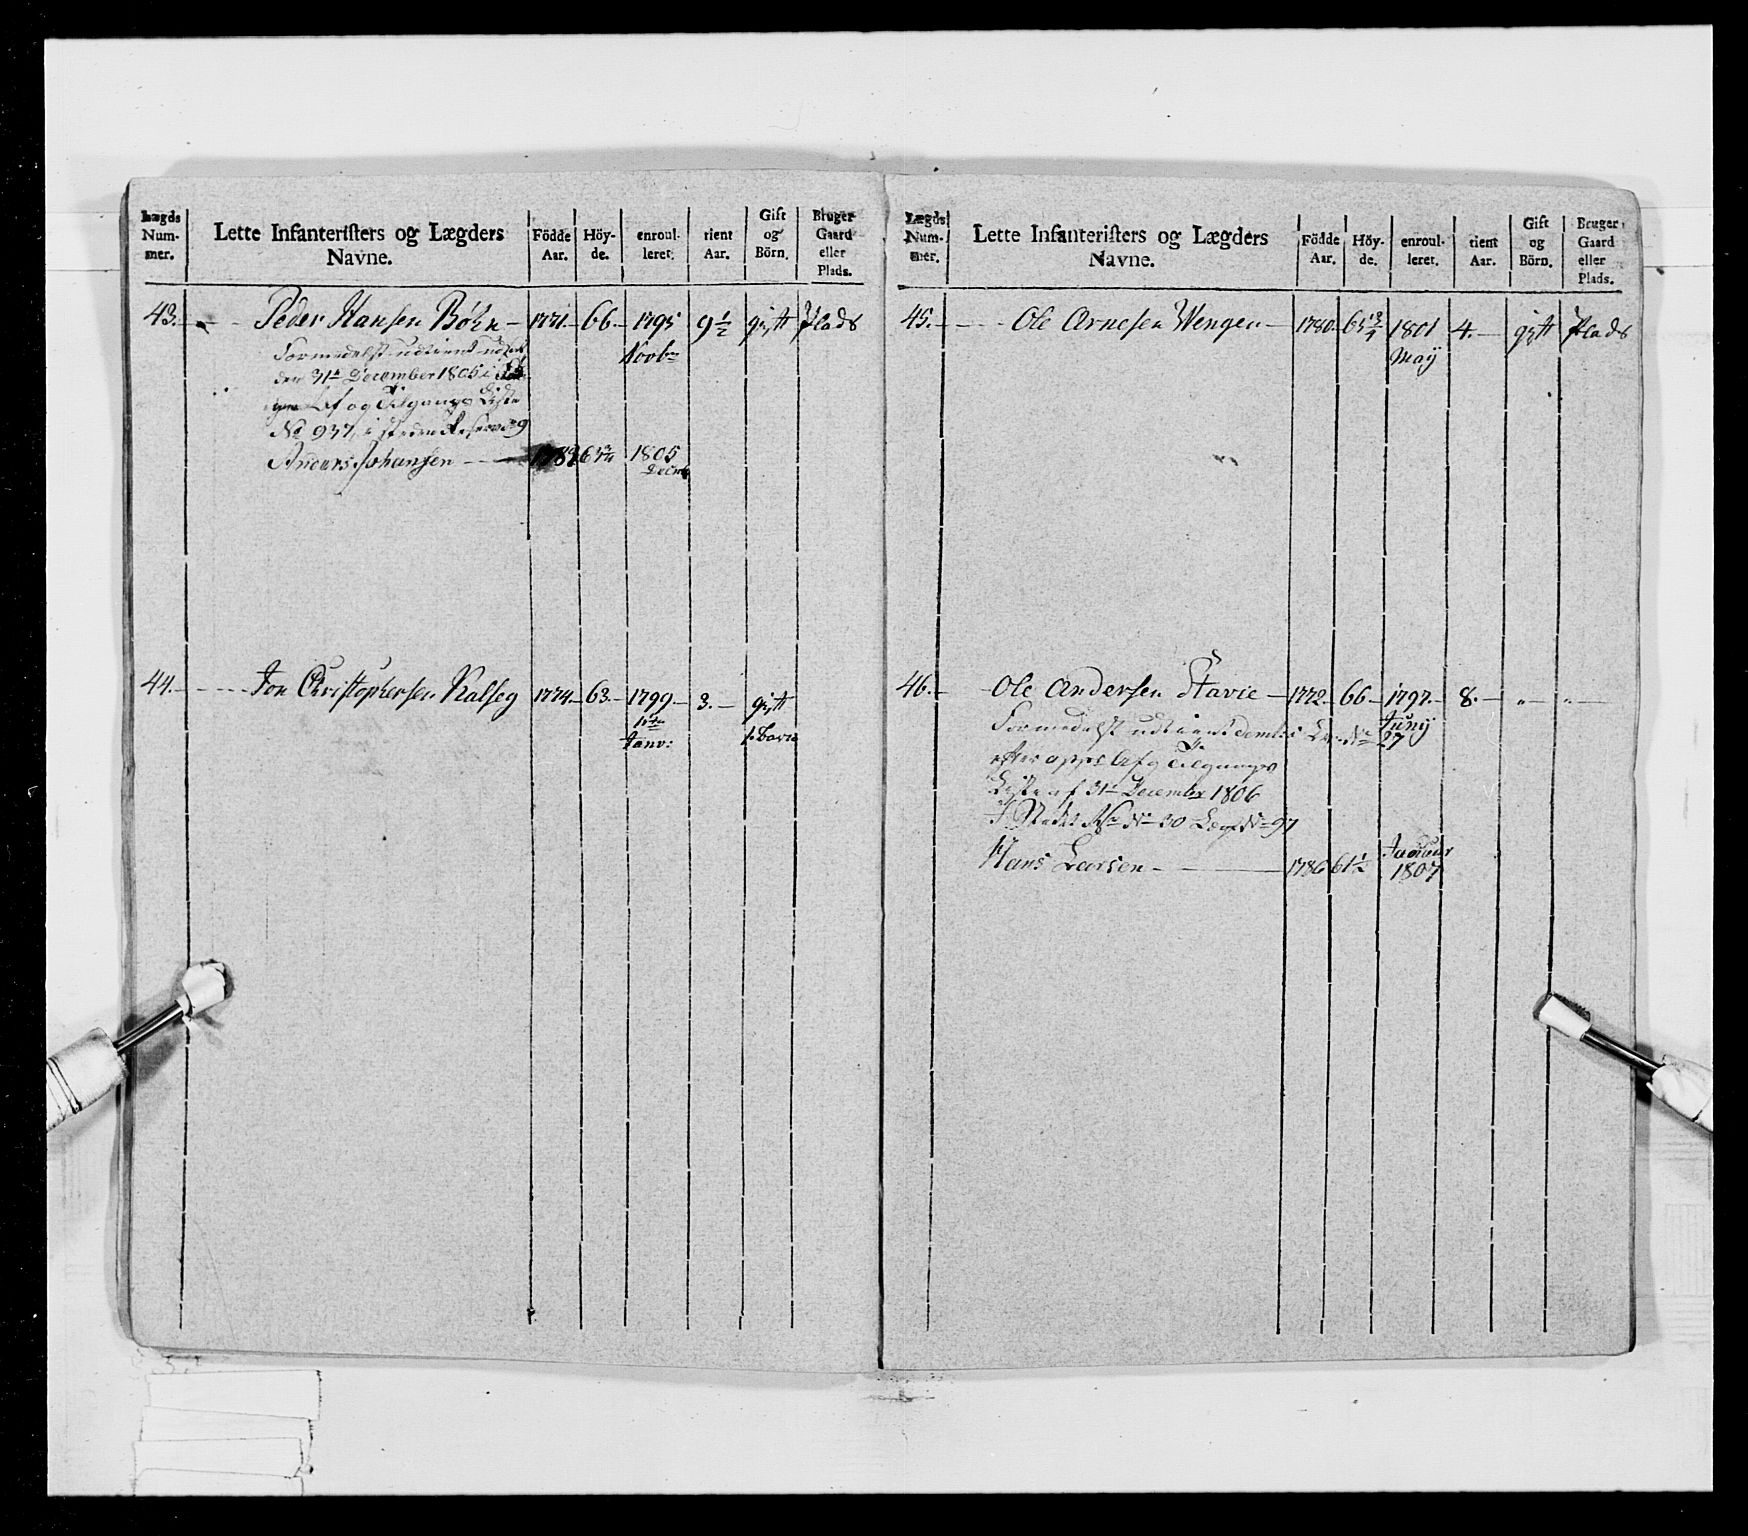 Lægds Num- mer. Lette Infanteristers og Lægders Navne. Födde Aar. Höy- de. enroul- leret. tient Aar. Gift og Börn. Bruger Gaard eller Plads.
43. Peder Hansen Böhn 1771. 66. 1795 9 1/2 gift Plads
Novbr
Formedelst udtient
den 31te December 1805 i
Af og Tilgangs Liste
No 937, i steden Reserve 9
Anders Johansen 1783 63 3/4 1805
Decbr
44. Jon Christophersen Kalseg 1774. 63. 1799. 3. gift
Janv: 1. Barn
Lægds Num- mer. Lette Infanteristers og Lægders Navne. Födde Aar. Höy- de. enroul- leret. tient Aar. Gift og Börn. Bruger Gaard eller Plads.
45. Ole Arnesen Wengen 1780. 1801 4. gift Plads
May
46. Ole Andersen Stavie 1772. 66 1797. 8. " "
Juny
Formedelst udtient 27
efter Af og Tilgangs
Liste af 31te December 1806
I Stedet No 30 97
Januar
Hans Larsen 1786 61 1/2 1807